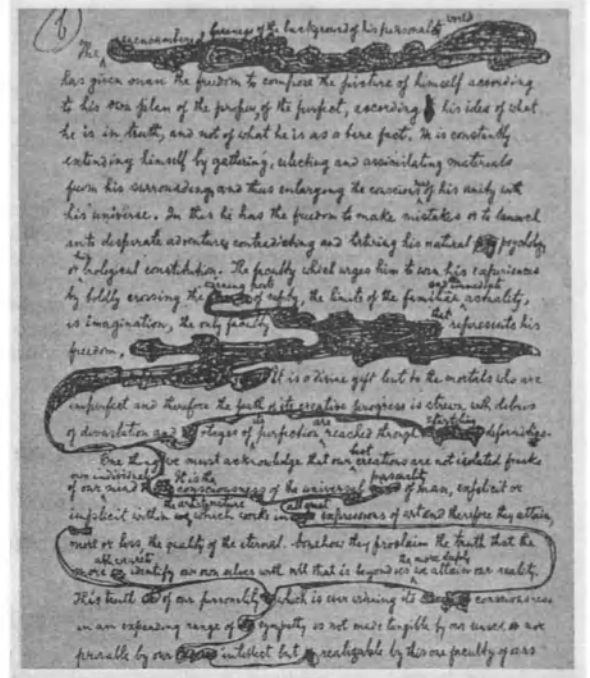 6
unencumbered fareness of the background of his personal world
The
has given man the freedom to compose the picture of himself according
to his own plan of the proper, of the perfect, according his idea of what
he is in truth, and not of what he is as a bare fact. He is constantly
extending himself by gathering, selecting and assimilating materials
from his surrounding, and thus enlarging the of his unity with
his universe. In this he has the freedom to make mistakes or to launch
into desperate adventures contradicting and torturing his natural psychology
or biological constitution. The faculty which urges him to his experiences
by boldly crossing the of safety, the limits of the familiar actuality,
and immediate
is imagination, the only faculty that represents his
freedom.
It is a divine gift lent to the mortals who are
imperfect and therefore the path of its creative progress is strewn with debris
of devastation and stages of its perfection are reached through startling deformities.
One thing we must acknowledge that our creations are not isolated freaks
our individual It is the but personality
of our mind consciousness of the universal of man, explicit or
the architecture all great
implicit within which works in expressions of art and therefore they attain,
more or less, the quality of the eternal. Somehow they proclaim the truth that the
the more deeply
more identify our own selves with all that is beyond us we attain our reality.
This truth of our personality which is ever its consciousness
in an expanding range of sympathy is not made tangible by our senses or
provable by our intellect but realizable by this one faculty of ours